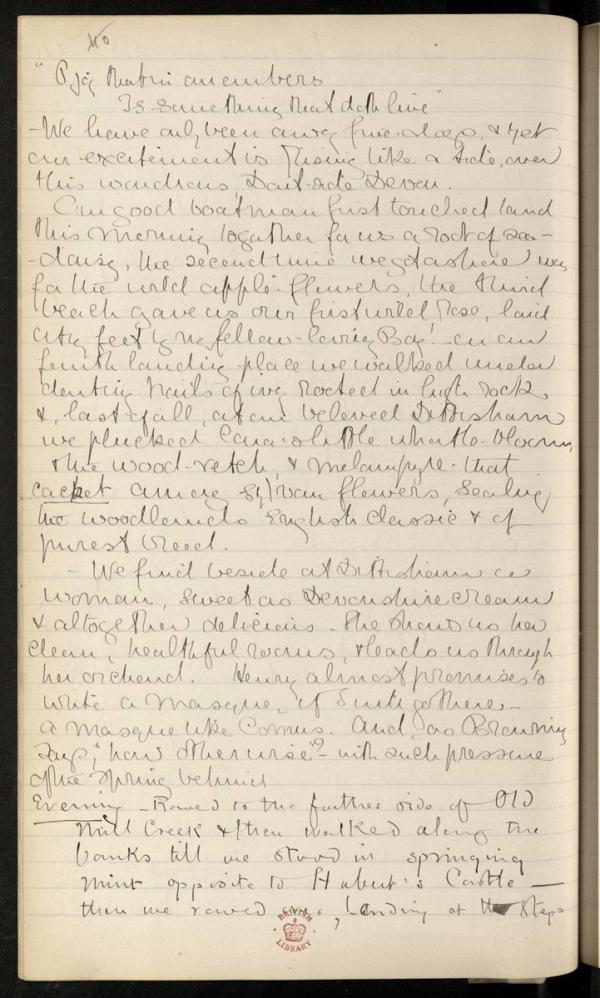 110
"O joy that in our embers
Is something that doth live"
- We have only been away five days, & yet
our excitement is rising like a tide, over
this wondrous, Dart-side Devon.
Our good boatman first touched land
this morning together for us a root of sea-
-daisy, the second time we got ashore was
for the wild apple-flowers, the third
beach gave us our first wild rose, laid
at my feet by my fellow-loving Boy! - on our
fourth landing-place we walked under
trails of ivy rooted in high rock,
&, last of all, at our beloved Dittisham
we plucked whortle-bloom,
the wood-vetch, & melampyre - that
cachet among sylvan flowers, sealing
the woodlands English classic & of
purest breed.
- We find beside at Dittisham a
woman, sweet as Devonshire cream
& altogether delicious. She shows us her
clean, healthful rooms, & leads us through
her orchard. Henry almost promises to
write a Masque, if I will go there -
a Masque like Comus. And, as Browning
says, "how otherwise?" - with such pressure
of the spring behind
Evening - Rowed to the further side of Old
Mill Creek & then walked along the
banks till we stood in springing
mint opposite to Hubert's Castle -
then we rowed , landing at the steps
BRITISH
LIBRARY